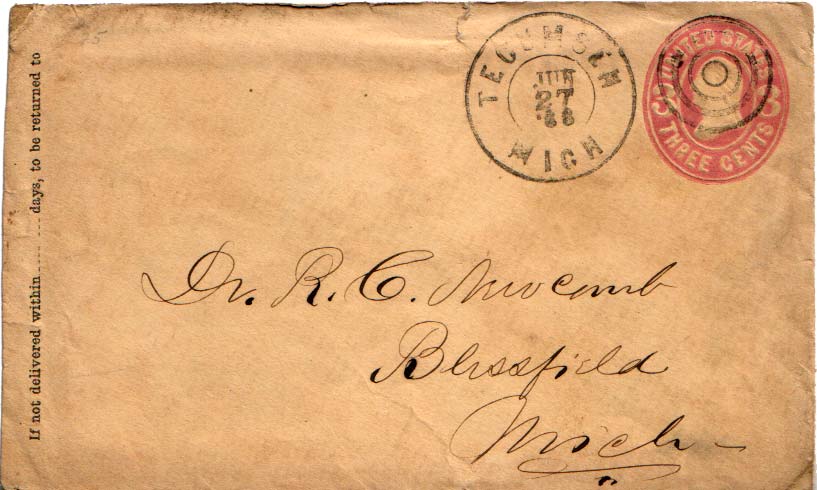 If not delivered within ..... ... days, to be returned to
TECUMSEH
JUN
27
MICH
UNITED STATES
THREE CENTS
3 3
Dr. R. C. Newcomb
Blissfield
Mich